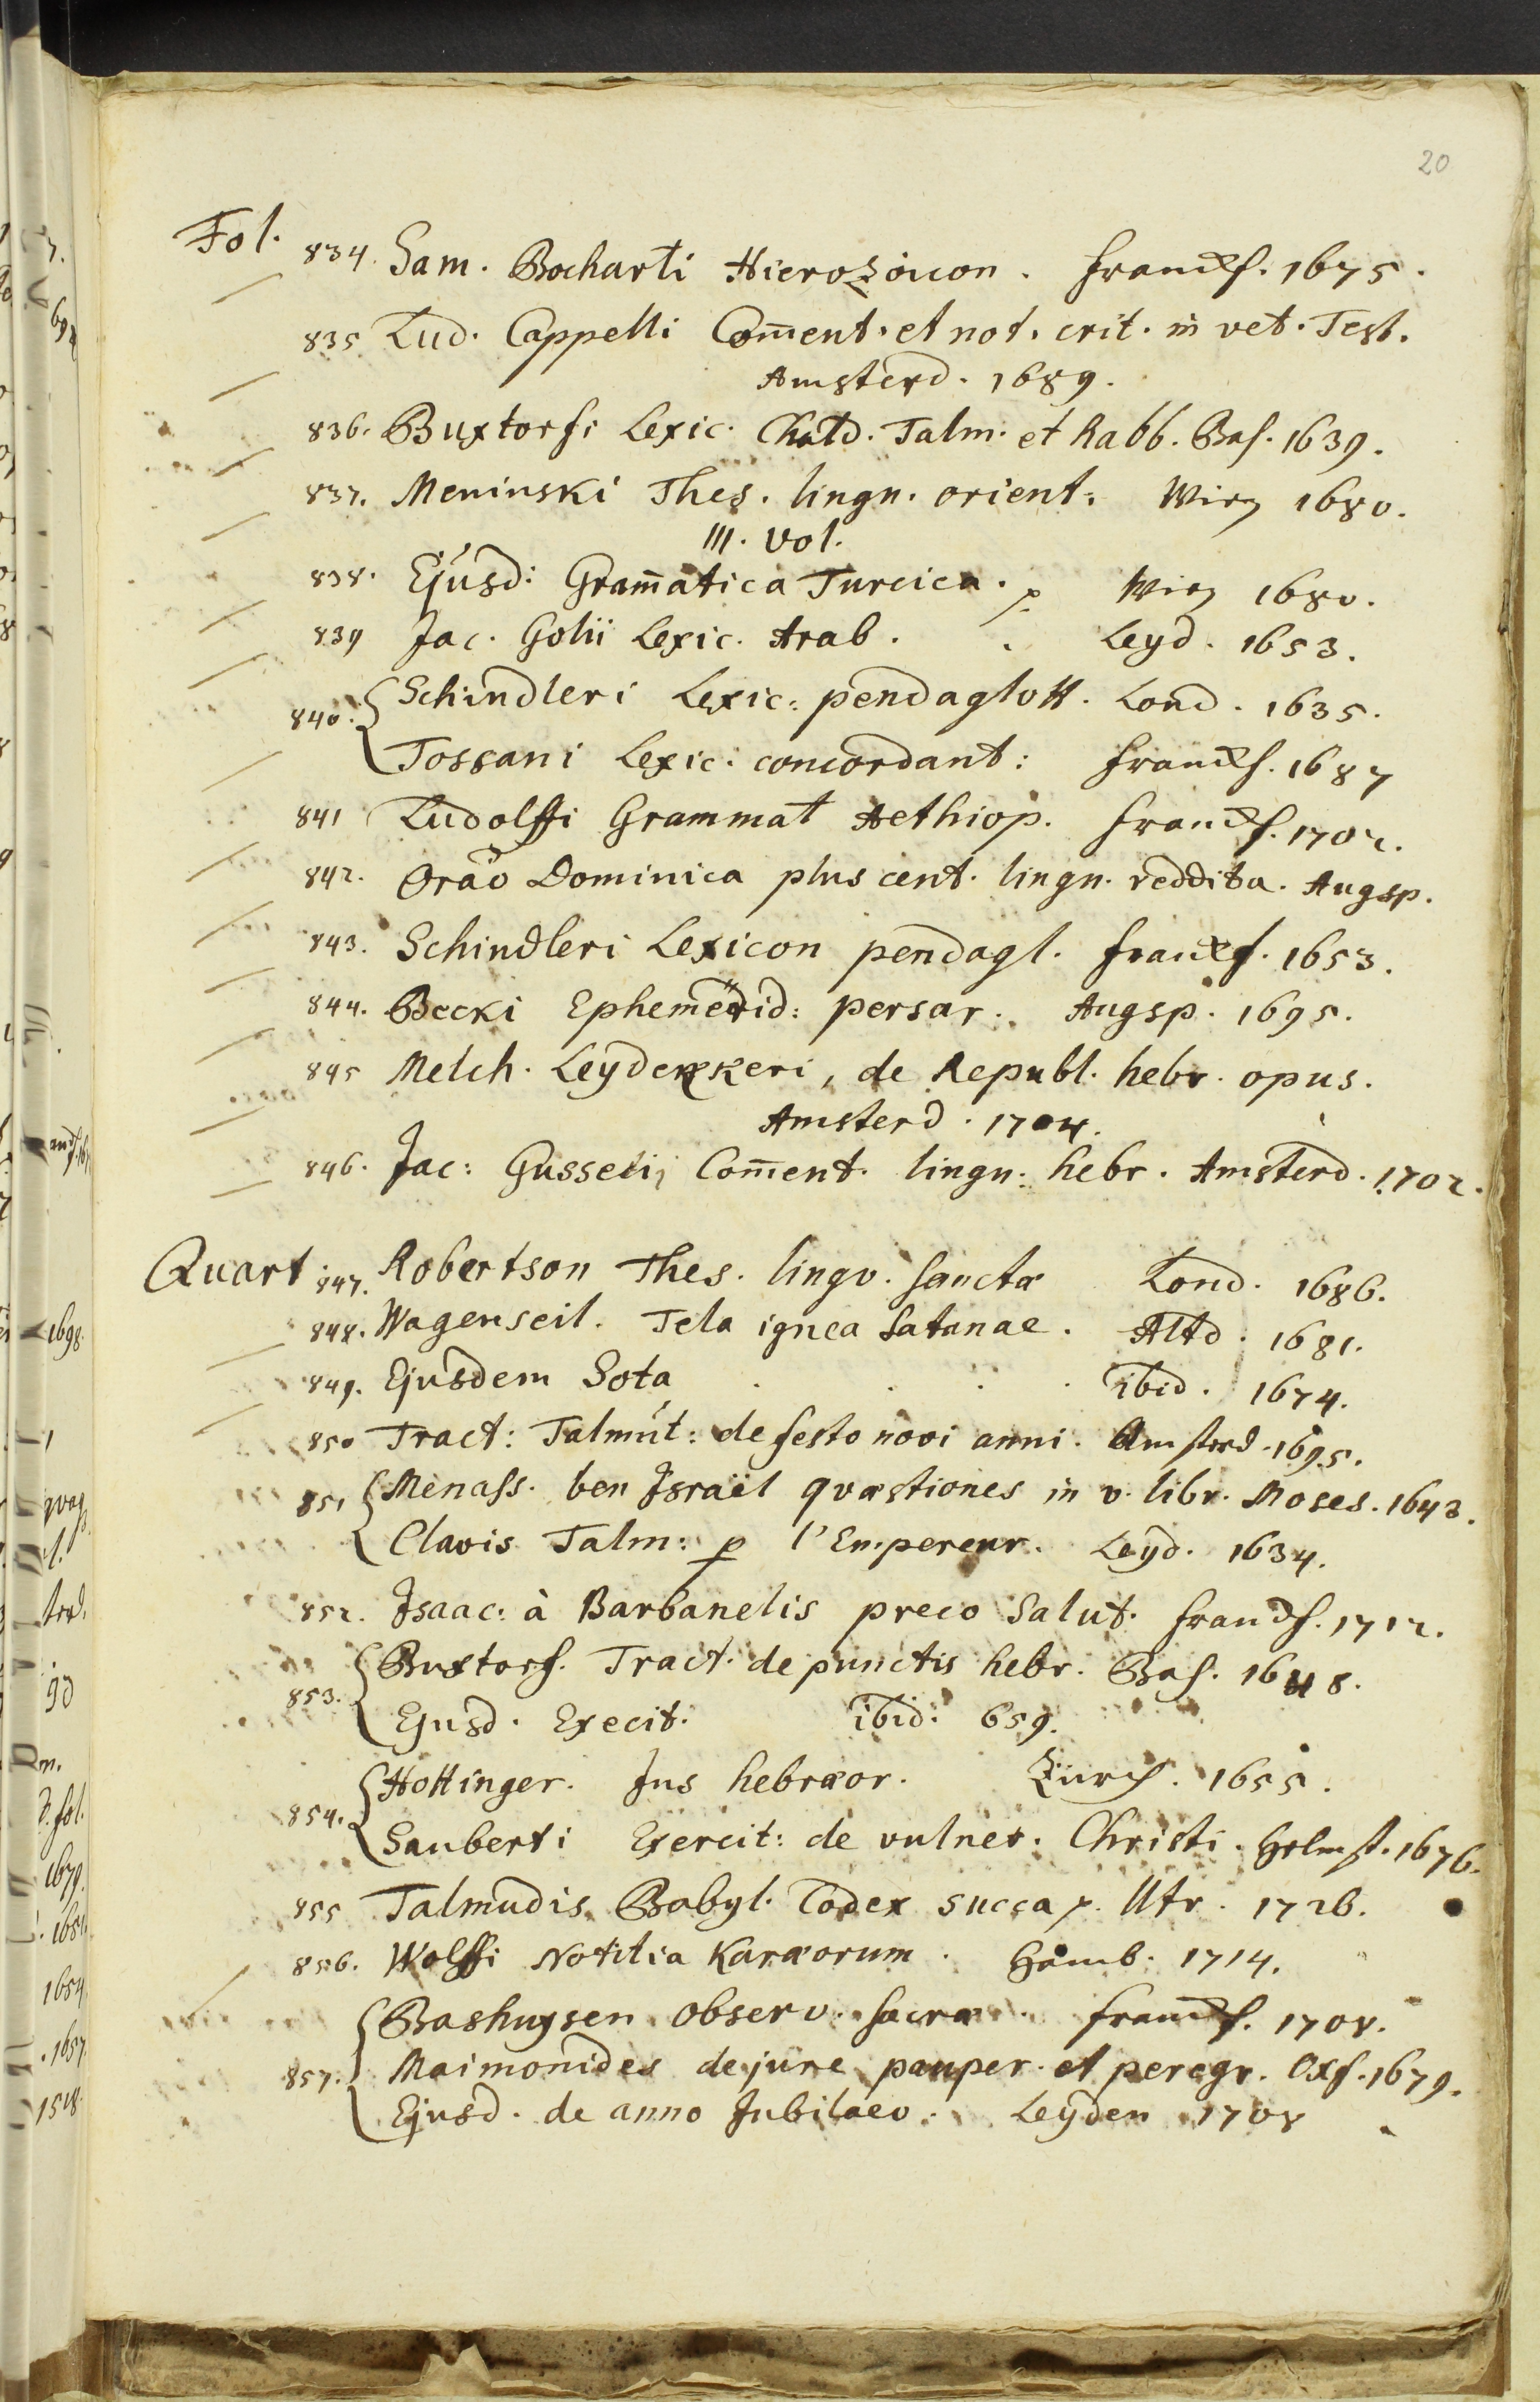 20
Fol. 834. Sam. Bocharti Hierozoicon. Franckf. 1675.
835 Lud. Cappelli Com̅ent. et not. crit. in vet. Test.
Amsterd. 1689.
836. Buxtorfi Lexic. Chald. Talm. et Rabb. Bas. 1639.
837. Meninski Thes. lingu. orient: Wien 1680.
III. Vol.
838. Ejusd: Gram̅atica Turcica. Wien 1680.
839 Jac. Golii Lexic. Arab. Leyd. 1653.
840. Schindleri Lexic: pendaglott. Lond. 1635.
Tossani Lexic: concordant: Franckf. 1687
841 Ludolffi Grammat Aethiop. Franckf. 1702.
842. Orão Dominica plus cent. lingu. reddita. Augsp.
843. Schindleri Lexicon pendagl. Franckf. 1653.
844. Becki Ephemerid: persar. Augsp. 1695.
845 Melch. Leydekkeri, de Republ. hebr. opus.
Amsterd. 1704.
846. Jac: Gussetii Com̅ent. lingu: hebr. Amsterd. 1702.
Quart 847. Robertson Thes. lingv. sanctæ Lond. 1686.
848. Wagenseil. Tela ignea Satanae. Altd. 1681.
849. Ejusdem Sota . . . . ibid. 1674.
850 Tract: Talmut: de festo novi anni. Amsterd. 1695.
851 Menass. ben Israël quæstiones in v. libr. Moses. 1643.
Clavis Talm: p l'Empereur. Leyd. 1634.
852. Isaac: à Barbanelis preco Salut. Franckf. 1712.
853. Buxtorf. Tract. de punctis hebr. Bas. 1648.
Ejusd. Execit. ibid: 659.
854. Hottinger. Jus hebræor. Zürch. 1655.
Sauberti Exercit: de vulner. Christi. Helmst. 1676.
855 Talmudis Babyl. Codex succa p. Utr. 1726.
856. Wolffi Notitia Karæorum. Hamb. 1714.
857. Bashuysen observ. sacræ. Franckf. 1708.
Maimonides de jure pauper. et peregr. Oxf. 1679.
Ejusd. de anno Jubilaeo. Leyden 1708